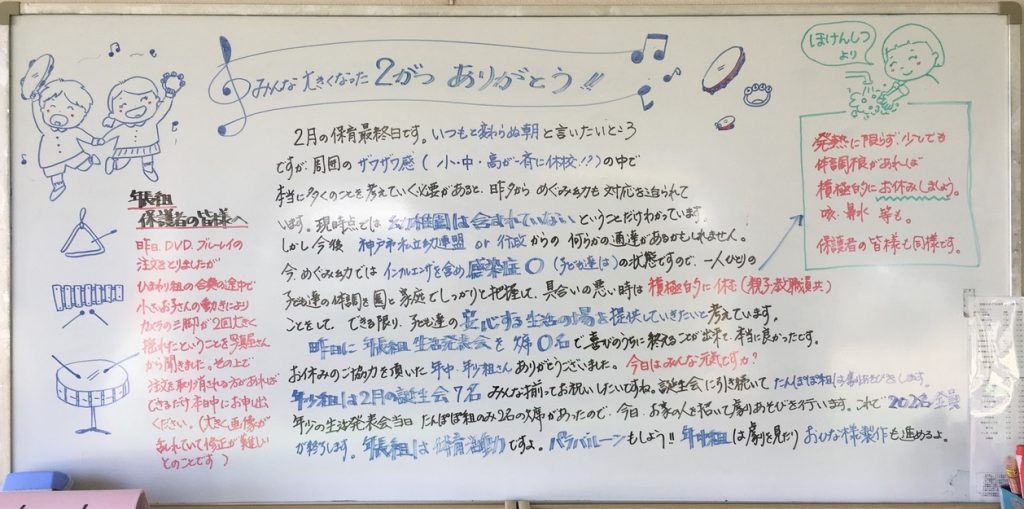 みんな 大きくなった 2がつ ありがとう!!
ほけんしつ
より
2月の保育最終日です。いつもと変わらぬ朝と言いたいところ
ですが、周囲のザワザワ感(小・中・高が一斉に休校!?)の中で
本当に多くのことを考えていく必要があると、昨夕から めぐみ幼も 対応を迫られて
います。現時点では 幼稚園は含まれていない ということだけわかっています。
しかし今後 神戸市私立幼連盟 or 行政からの 何らかの通達があるかもしれません。
今、めぐみ幼では インフルエンザを含め 感染症〇(子ども達は)の状態ですので、一人ひとりの
子ども達の体調を園と家庭でしっかりと把握して、具合いの悪い時は 積極的に休む(親子・教職員共)
ことをして、できる限り、子ども達の安心する生活の場を提供していきたいと考えています。
昨日に 年長組 生活発表会を 欠席〇名で喜びのうちに終えることが出来て、本当に良かったです。
お休みのご協力を頂いた 年中・年少組さん ありがとうございました。今日はみんな元気ですか?
年少組は2月の誕生会7名 みんな揃ってお祝いしたいですね。誕生会に引き続いて たんぽぽ組は劇あそびをします。
年少の生活発表会当日 たんぽぽ組のみ2名の欠席があったので、今日、お家の人を招いて劇あそびを行います。これで 202名 全員
が終ります。年長組は 体育活動ですよ。パラバルーンもしよう!! 年中組は劇を見たり おひな様製作も進めるよ。
発熱に限らず、少しでも
体調不良があれば
積極的に お休みしましょう。
咳・鼻水 等も。
保護者の皆様も同様です。
年長組
保護者の皆様へ
昨日、DVD、ブルーレイの
注文をとりましたが
ひまわり組の合奏の途中で
小さいお子さんの動きにより
カメラの三脚が2回大きく
揺れたということを写真屋さん
から聞きました。その上で
注文を取り消される方があれば
できるだけ本日中にお申し出
ください。(大きく画像が
ぶれていて修正が難しい
とのことです)